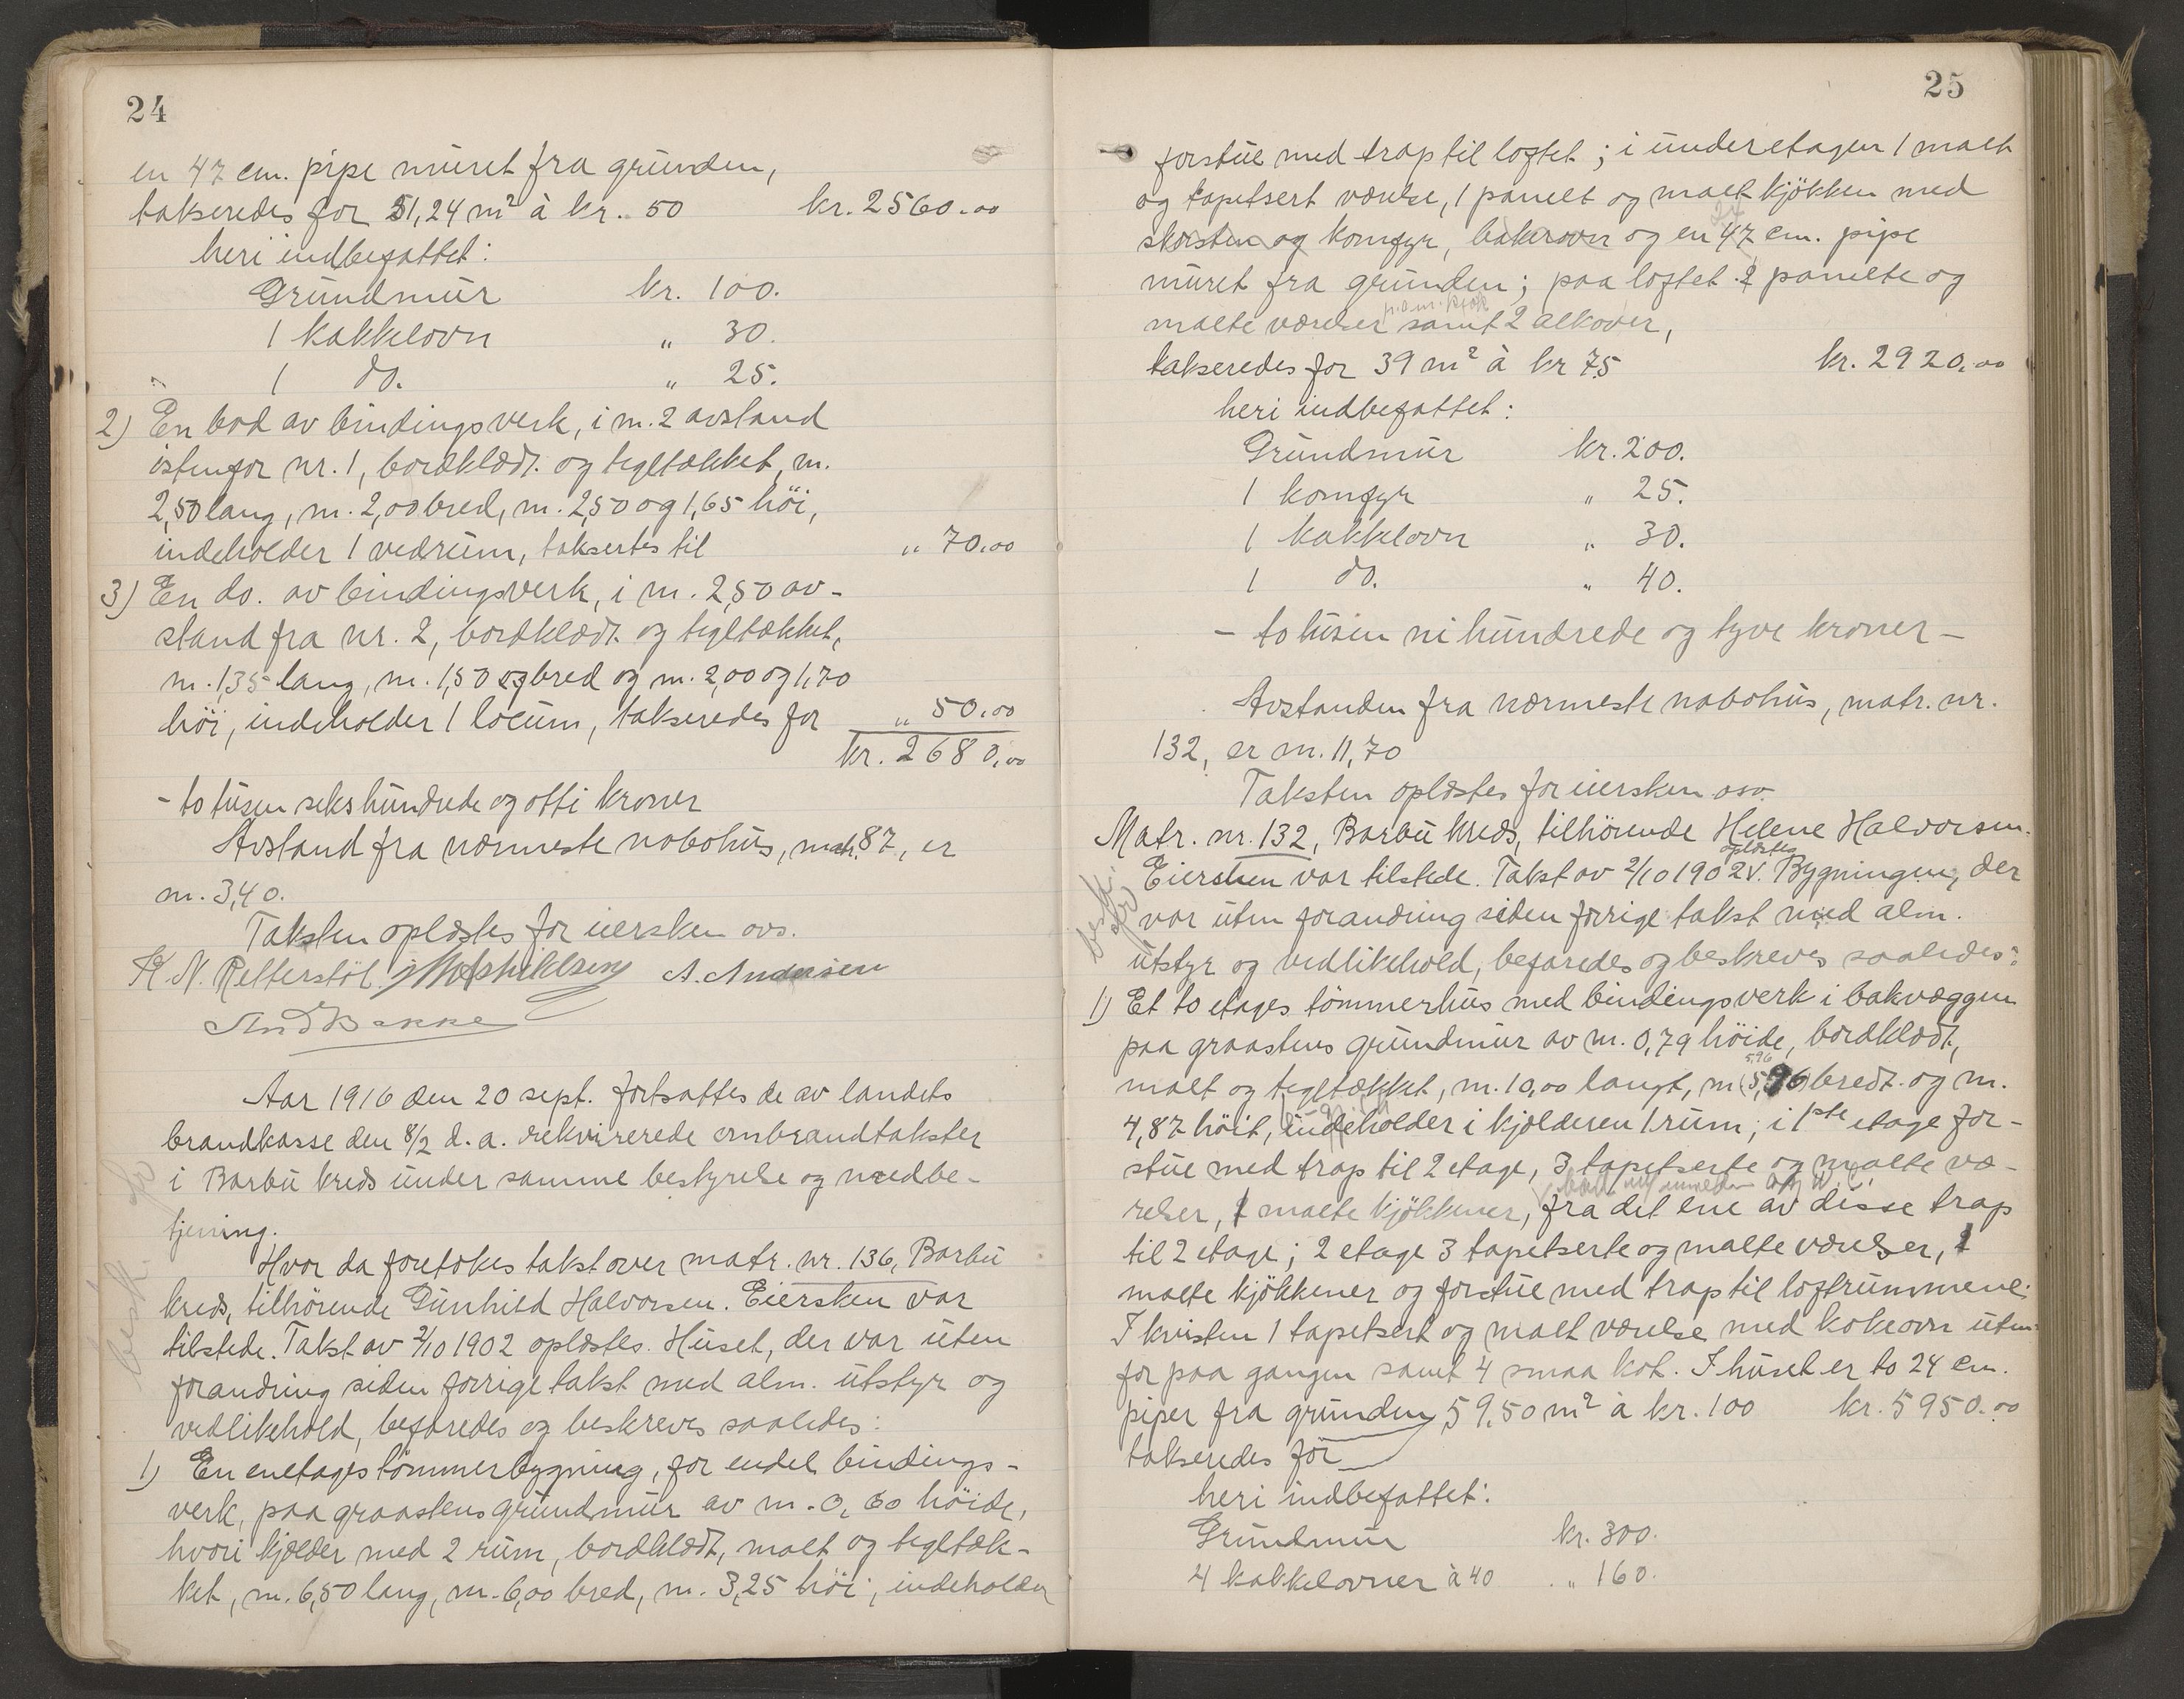 24
en 47 cm. pipe muret fra grunden,
takseredes for 51,24 m² à kr. 50 kr. 2560.00
heri indbefattet:
Grundmur kr. 100.
1 kakkelovn " 30.
1 do. " 25.
2) En bod av bindingsverk, i m. 2 avstand
østenfor nr. 1, bordklædt og tegltækket, m.
2,50 lang, m. 2,00 bred, m. 2,50 og 1,65 höi,
indeholder 1 vedrum, taksertes til " 70.00
3) En do. av bindingsverk, i m. 2,50 av-
stand fra nr. 2, bordklædt og tegltækket,
m. 1,35 lang, m. 1,50 bred og m. 2,00 og 1,70
höi, indeholder 1 locum, takseredes for " 50.00
kr. 2680.00
- to tusen sekshundrede og otti kroner
Avstand fra nærmeste nabohus, matr. 87, er
m. 3,40.
Taksten oplæstes for eiersken ovs.
K. N. Retterstöl. A. Andersen
And Bakke
Aar 1916 den 20 sept. fortsattes de av landets
brandkasse den 8/2 d. a. rekvirerede ombrandtakster
i Barbu kreds under samme bestyrelse og medbe-
tjening.
Hvor da foretokes takst over matr. nr. 136, Barbu
kreds, tilhörende Gunhild Halvorsen. Eiersken var
tilstede. Takst av 2/10 1902 oplæstes. Huset, der var uten
forandring siden forrige takst med alm. utstyr og
vedlikehold, befaredes og beskreves saaledes:
besk.
1) En enetages tömmerbygning, for endel bindings-
verk, paa graastens grundmur av m. 0,60 höide,
hvori kjelder med 2 rum, bordklædt, malt og tegltæk-
ket, m. 6,50 lang, m. 6,00 bred, m. 3,25 höi, indeholder
25
forstue med trap til loftet; i underetagen 1 malt
og tapetsert værelse, 1 panelt og malt kjökken med
skorsten og komfyr, bakerovn og en 47 cm. pipe
muret fra grunden; paa loftet 2 panelte og
malte værelser samt 2 alkover,
takseredes for 39 m² à kr 75 kr. 2920.00
heri indbefattet:
Grundmur kr. 200.
1 komfyr " 25.
1 kakkelovn " 30.
1 do. " 40.
- to tusen ni hundrede og tyve kroner -
Avstanden fra nærmeste nabohus, matr. nr.
132, er m. 11,70
Taksten oplæstes for eiersken ovs.
Matr. nr. 132, Barbu kreds, tilhörende Helene Halvorsen.
oplæstes
Eiersken var tilstede. Takst av 2/10 1902 V. Bygningen, der
besk.
var uten forandring siden forrige takst med alm.
utstyr og vedlikehold, befaredes og beskreves saaledes:
1) Et to etages tömmerhus med bindingsverk i bakvæggen
paa graastens grundmur av m. 0,79 höide, bordklædt,
5,96
malt og tegltækket, m. 10,00 langt, m (5,96) bredt og m.
4,87 höit, indeholder i kjelderen 1 rum; i 1ste etage for-
stue med trap til 2 etage, 3 tapetserte og malte væ-
relser, 1 malte kjökkener, fra det ene av disse trap
til 2 etage; 2 etage 3 tapetserte og malte værelser, 1
malte kjökkener og forstue med trap til loftrummene.
I kvisten 1 tapetsert og malt værelse med kokeovn uten-
for paa gangen samt 4 smaa kot. I huset er to 24 cm.
piper fra grunden, 59,50 m² à kr. 100 kr. 5950.00
takseredes for
heri indbefattet:
Grundmur kr. 300.
4 kakkelovner à 40 " 160.